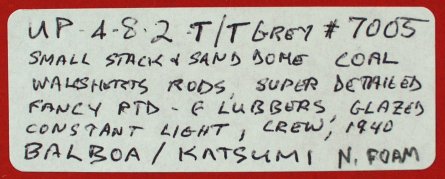 UP 4-8-2 T/T GREY # 7005
SMALL STACK & SAND DOME COAL
WALSHERTS RODS, SUPER DETAILED
FANCY PTD - E LUBBERS, GLAZED
CONSTANT LIGHT, CREW, 1940
BALBOA / KATSUMI N. FOAM